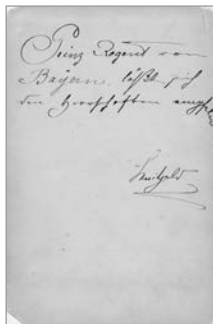 Prinz Regent von
Bayern, läßt sich
den Herrschaften
Luitpold